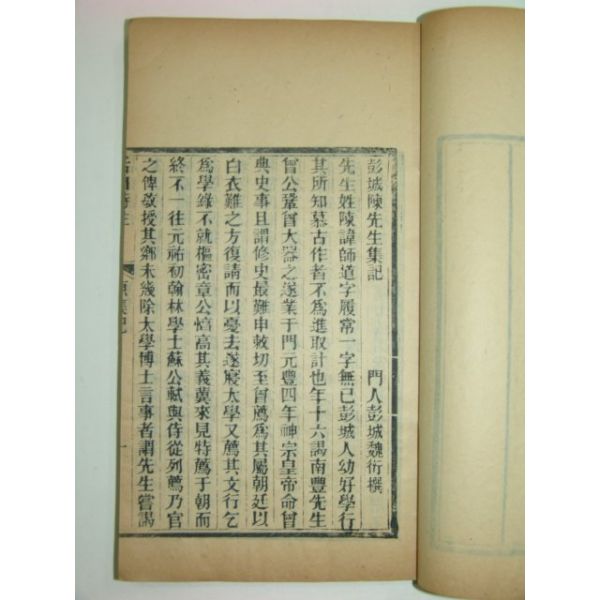 彭城陳先生集記
門人彭城魏衍撰
先生姓陳諱師道字履常一字無已彭城人幼好學行
其所知慕古作者不爲進取計也年十六謁南豐先生
曾公鞏曾大器之遂業于門元豐四年神宗皇帝命曾
典史事且謂修史最難申敕切至曾薦爲其屬朝廷以
白衣難之方復請而以憂去遂寢太學又薦其文行乞
爲學錄不就樞密章公惇高其義冀來見特薦于朝而
終不一往元祐初翰林學士蘇公軾與侍從列薦乃官
之俾敎授其鄕未幾除太學博士言事者謂先生嘗謁